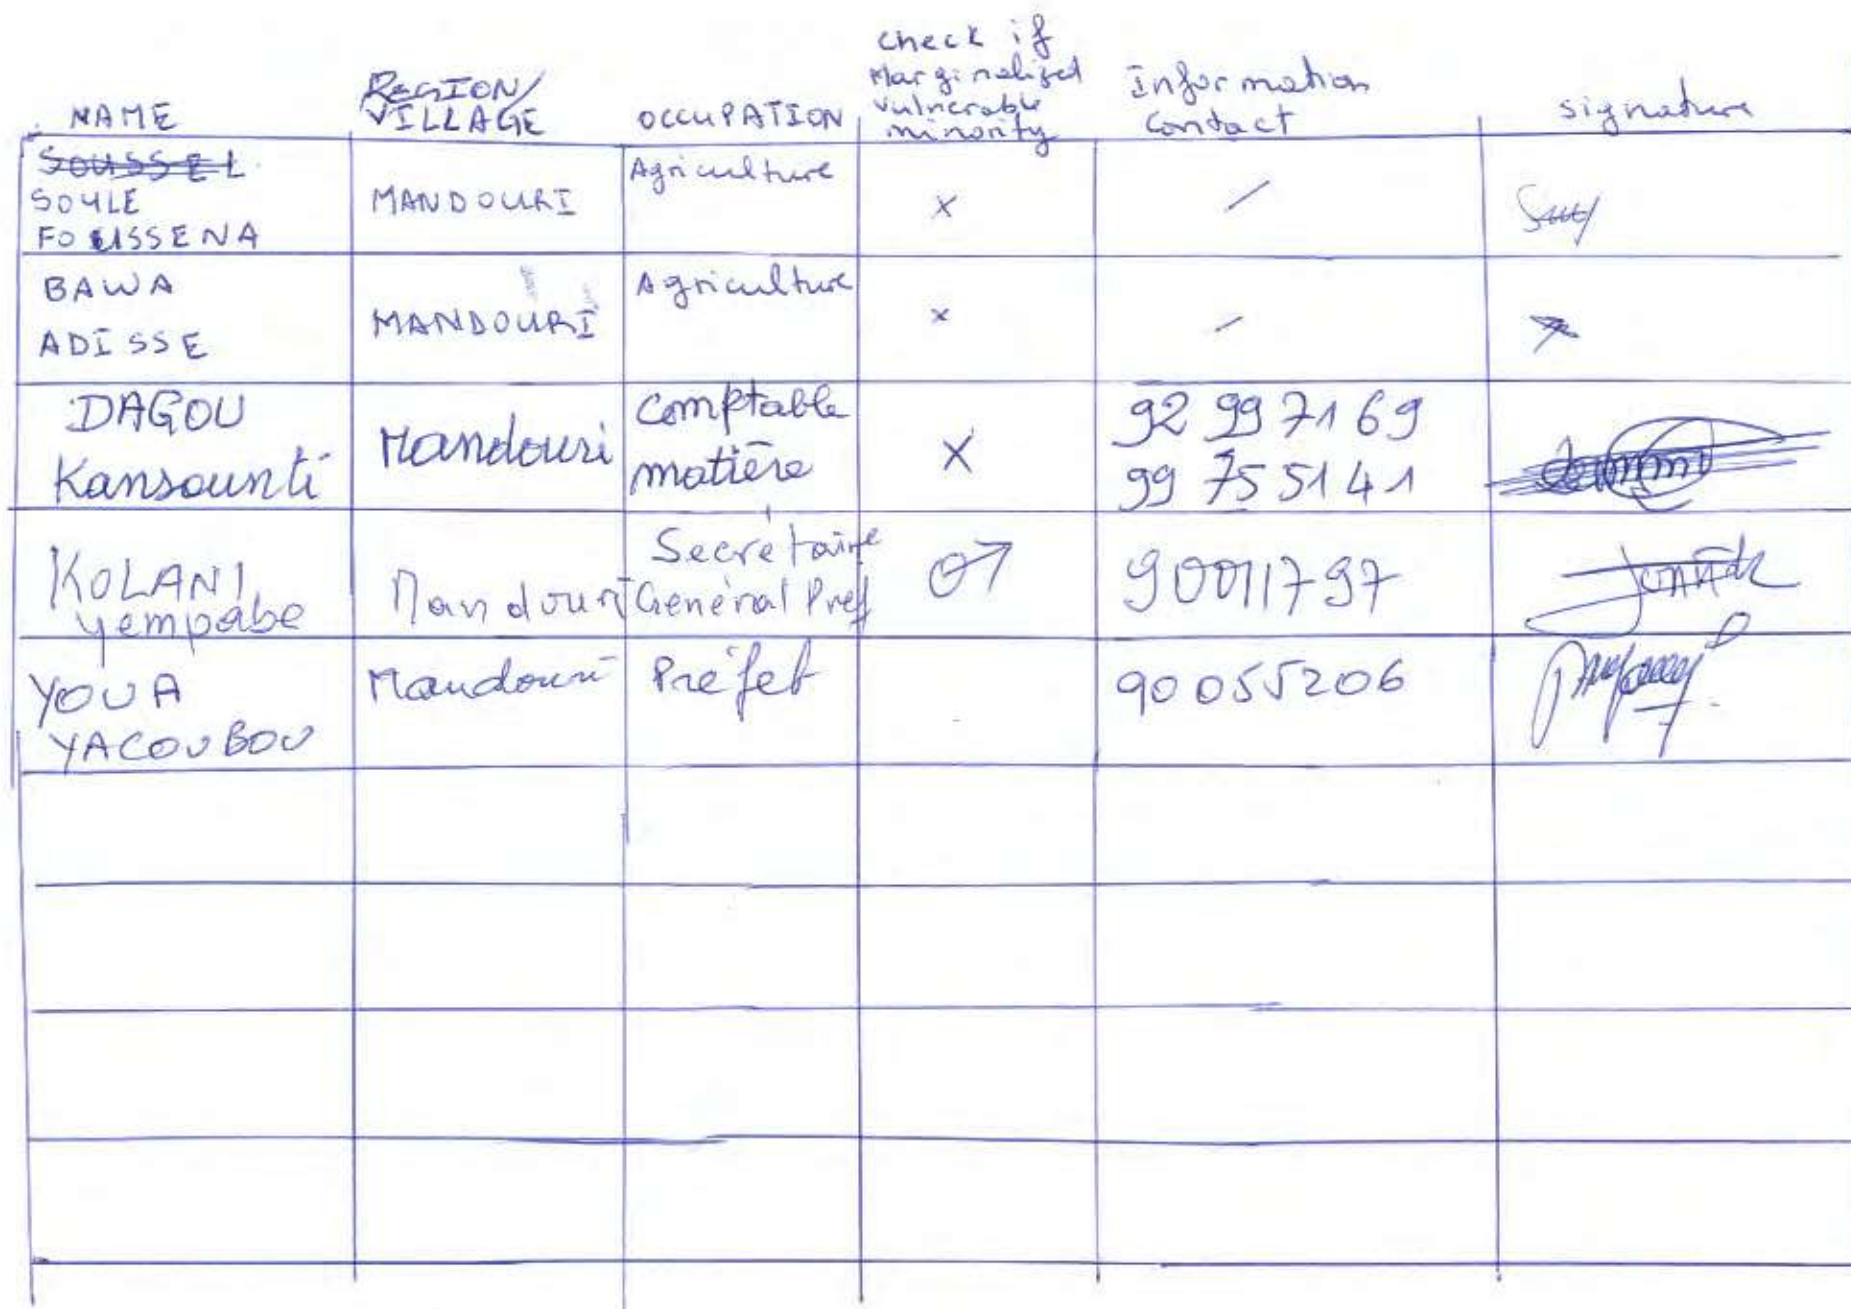 NAME
REGION/
VILLAGE
OCCUPATION
check if
Marginalized
vulnerable
minority
Information
Contact
signature
SOUSSEL
SOULE
FOUSSENA
MANDOURI
Agriculture
x
/
BAWA
ADISSE
MANDOURI
Agriculture
x
/
DAGOU
Kansounti
Mandouri
Comptable
matière
X
92 99 71 69
99 75 51 41
KOLANI
yempabe
Mandouri
Secrétaire
Général Pref
90011797
YOUA
YACOUBOU
Mandouri
Préfet
90 05 52 06